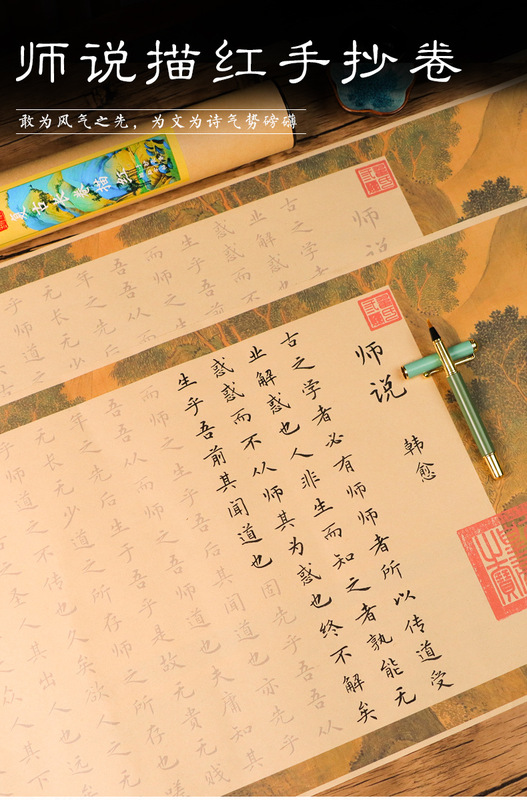 师说描红手抄卷
敢为风气之先，为文为诗气势磅礴
复古长卷描红
师说
古之学者
业解惑也
惑惑而
生乎吾
而师之生
吾吾从而
年之先
无长无少
乎师道之
师说
韩愈
古之学者必有师师者所以传道受
业解惑也人非生而知之者孰能无
惑惑而不从师其为惑也终不解矣
生乎吾前其闻道也固先乎吾吾从
而师之生乎吾后其闻道也亦先乎
吾吾从而师之吾师道也夫庸知其
年之先后生于吾乎是故无贵无贱
无长无少道之所存师之所存也嗟
乎师道之不传也久矣欲人之无
古之圣人其出人也
众人其下